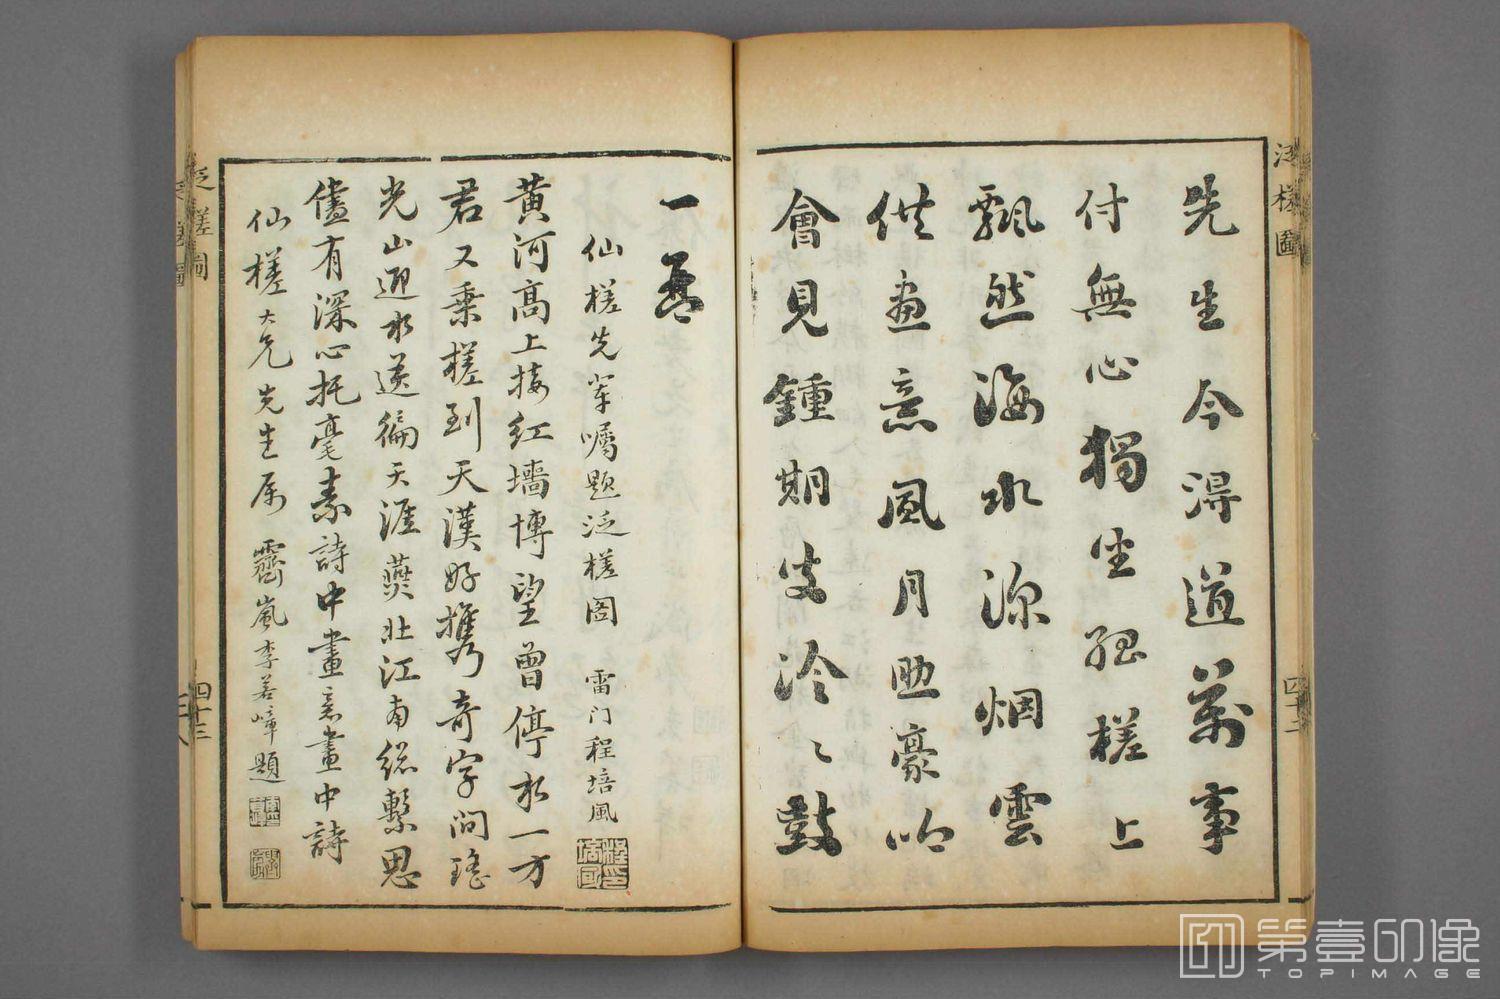 先生今淂道萬事
付無心獨坐孤槎上
飄然海水深烟雲
供畫意風月助豪吟
會見鍾期叟泠〻鼓
一琴
仙槎先輩囑題泛槎圖 雷门程培風
黄河高上接红墙博望曾停水一方
君又乘槎到天漢好攜奇字问瑤
光山迎水送徧天涯燕北江南總繫思
儘有深心托毫素詩中畫意畫中詩
仙槎大兄先生属 霽嵐李若嶂題
泛槎圖
四十二
泛槎圖
四十三
第壹印像
TOPIMAGE